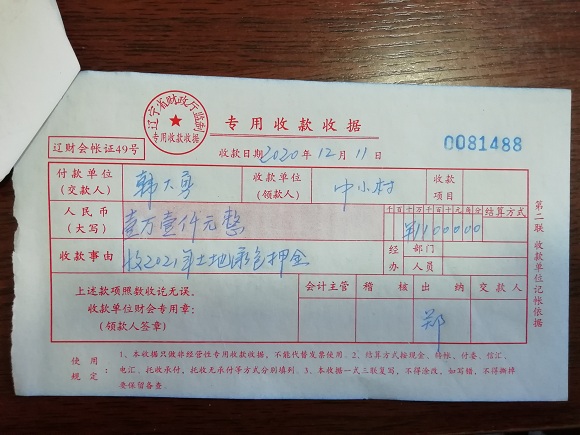 辽宁省财政厅监制
专用收款收据
专用收款收据
辽财会帐证49号
收款日期2020年12月11日
0081488
付款单位
(交款人)
韩大勇
收款单位
(领款人)
中小村
收款
项目
人民币
(大写)
壹万壹仟元整
千百十万千百十元角分
结算方式
¥1100000
收款事由
收2021年土地承包押金
经办
部门
人员
上述款项照数收讫无误。
收款单位财会专用章:
(领款人签章)
会计主管
稽核
出纳
交款人
郑
第二联 收款单位记帐依据
使用规定:
1、本收据只做非经营性专用收款收据,不能代替发票使用。2、结算方式按现金、转帐、付委、信汇、
电汇、托收承付,托收无承付等方式分别填列。3、本收据一式三联复写,不得涂改,如写错,不得撕掉
要保留备查。